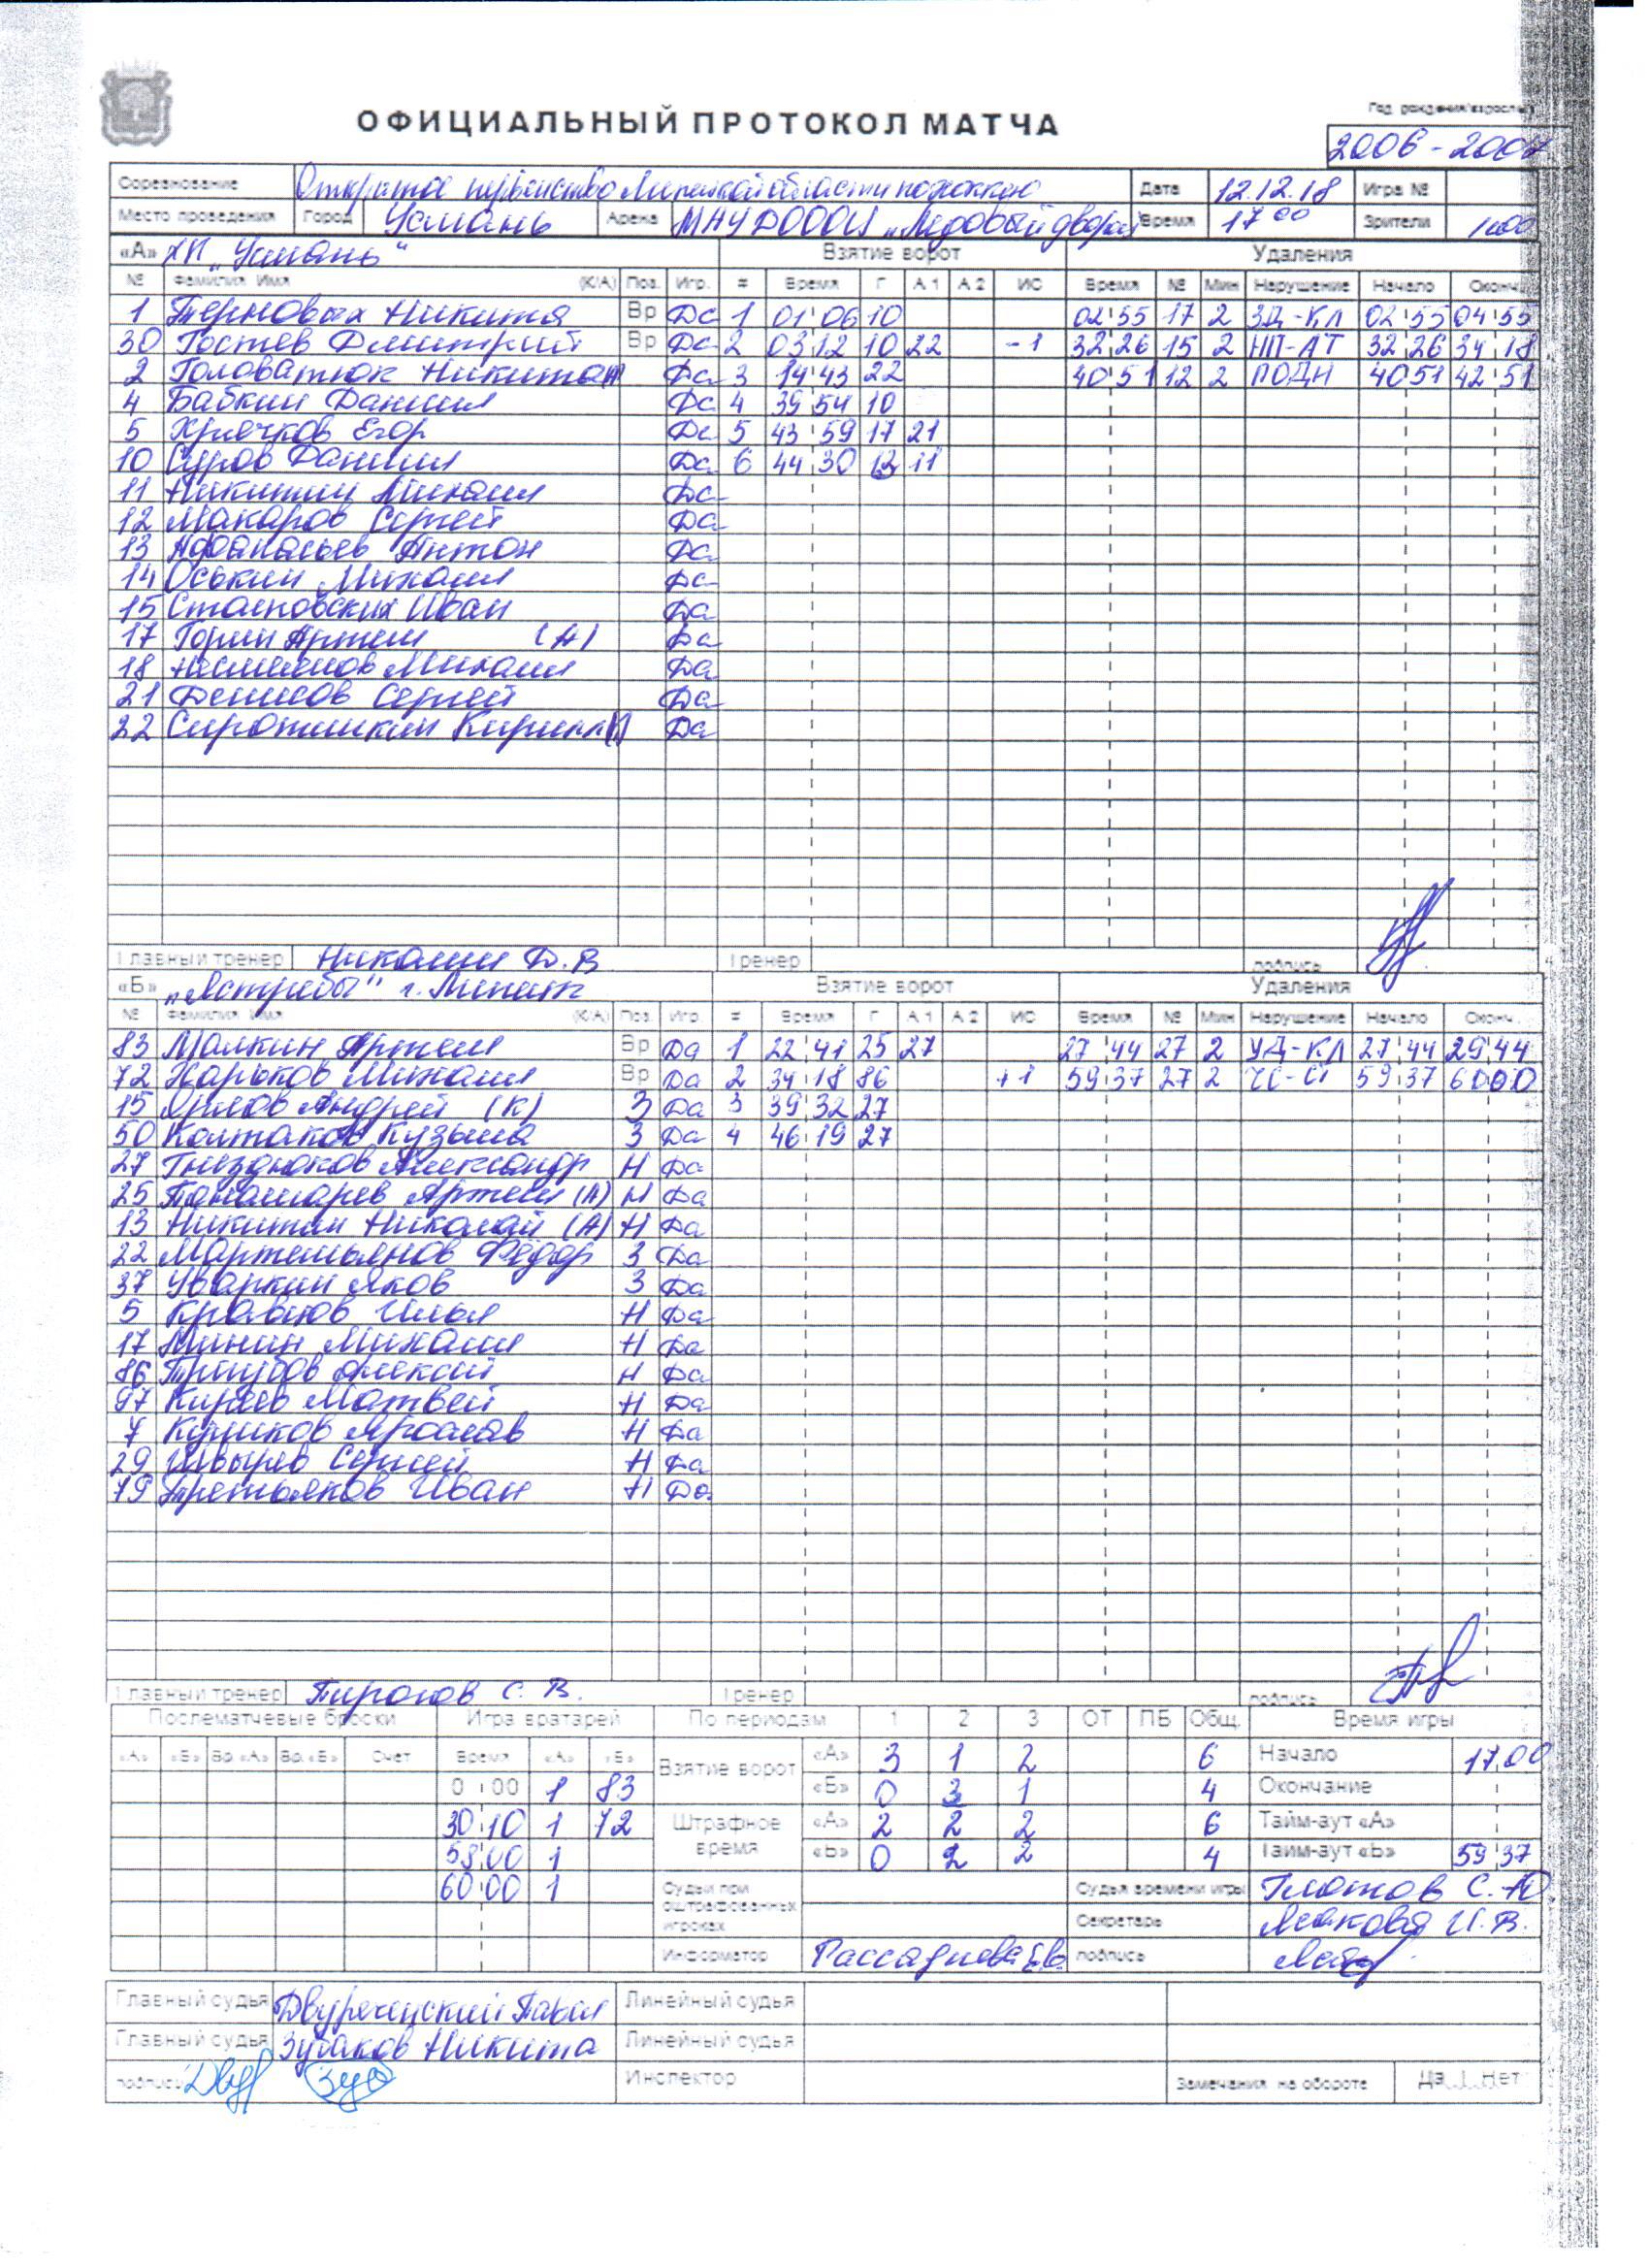 Год рождения/взрослые
ОФИЦИАЛЬНЫЙ ПРОТОКОЛ МАТЧА
2006 - 2007
Соревнование Открытое первенство Липецкой области по хоккею Дата 12.12.18 Игра №
Место проведения Город Усмань Арена МАУ ДОООЦ „Ледовый дворец" Время 17 00 Зрители 100
«А» ХК „Усмань" Взятие ворот Удаления
№ Фамилия Имя (К/А) Поз. Игр. # Время Г А1 А2 ИС Время № Мин Нарушение Начало Оконч.
1 Терновых Никита Вр Да 1 01 06 10 02 55 17 2 ЗД-КЛ 02 55 04 55
30 Гостев Дмитрий Вр Да 2 03 12 10 22 -1 32 26 15 2 НП-АТ 32 26 34 18
2 Головатюк Никита А Да 3 14 43 22 40 51 12 2 ПОДН 40 51 42 51
4 Бабкин Даниил Да 4 39 54 10
5 Хрячков Егор Да 5 43 59 17 21
10 Суров Даниил Да 6 44 30 12 11
11 Никитин Михаил Да
12 Макаров Сергей Да
13 Афанасьев Антон Да
14 Оськин Михаил Да
15 Стаепровских Иван Да
17 Горин Артем (А) Да
18 Несмеянов Михаил Да
21 Денисов Сергей Да
22 Сиротинкин Кирилл (К) Да
Главный тренер Никонин Д.В Тренер подпись
«Б» „Ястребы" г. Липецк Взятие ворот Удаления
№ Фамилия Имя (К/А) Поз. Игр. # Время Г А1 А2 ИС Время № Мин Нарушение Начало Оконч.
83 Малкин Артем Вр Да 1 22 41 25 27 27 44 27 2 УД-КЛ 27 44 29 44
72 Харьков Михаил Вр Да 2 34 18 86 +1 59 37 27 2 ЧС-СП 59 37 60 00
15 Орлов Андрей (К) З Да 3 39 32 27
50 Колтаков Кузьма З Да 4 46 19 27
27 Гнездюков Александр Н Да
25 Понамарев Артем (А) Н Да
13 Никитин Николай (А) Н Да
22 Мартемьянов Фёдор З Да
37 Уваркин Яков З Да
5 Кравцов Илья Н Да
17 Минин Михаил Н Да
86 Тригубов Алексей Н Да
97 Киреев Матвей Н Да
7 Куликов Ярослав Н Да
29 Швырев Сергей Н Да
79 Третьяков Иван Н Да
Главный тренер Пирогов С. В. Тренер подпись
Послематчевые броски Игра вратарей По периодам 1 2 3 ОТ ПБ Общ. Время игры
«А» «Б» Вр.«А» Вр.«Б» Счет Время «А» «Б» Взятие ворот «А» 3 1 2 6 Начало 17 00
0 00 1 83 «Б» 0 3 1 4 Окончание
30 10 1 72 Штрафное время «А» 2 2 2 6 Тайм-аут «А»
58 00 1 «b» 0 2 2 4 Тайм-аут «b» 59 37
60 00 1 Судьи при оштрафованных игроках Судья времени игры Глотов С. Ю
Секретарь И. В.
Информатор подпись
Главный судья Двуреченский Павел Линейный судья
Главный судья Зубаков Никита Линейный судья
подписи Инспектор Замечания на обороте Да | Нет